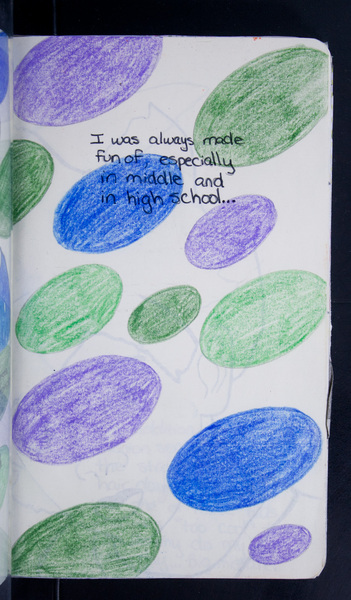 I was always made
fun of especially
in middle and
in high school...